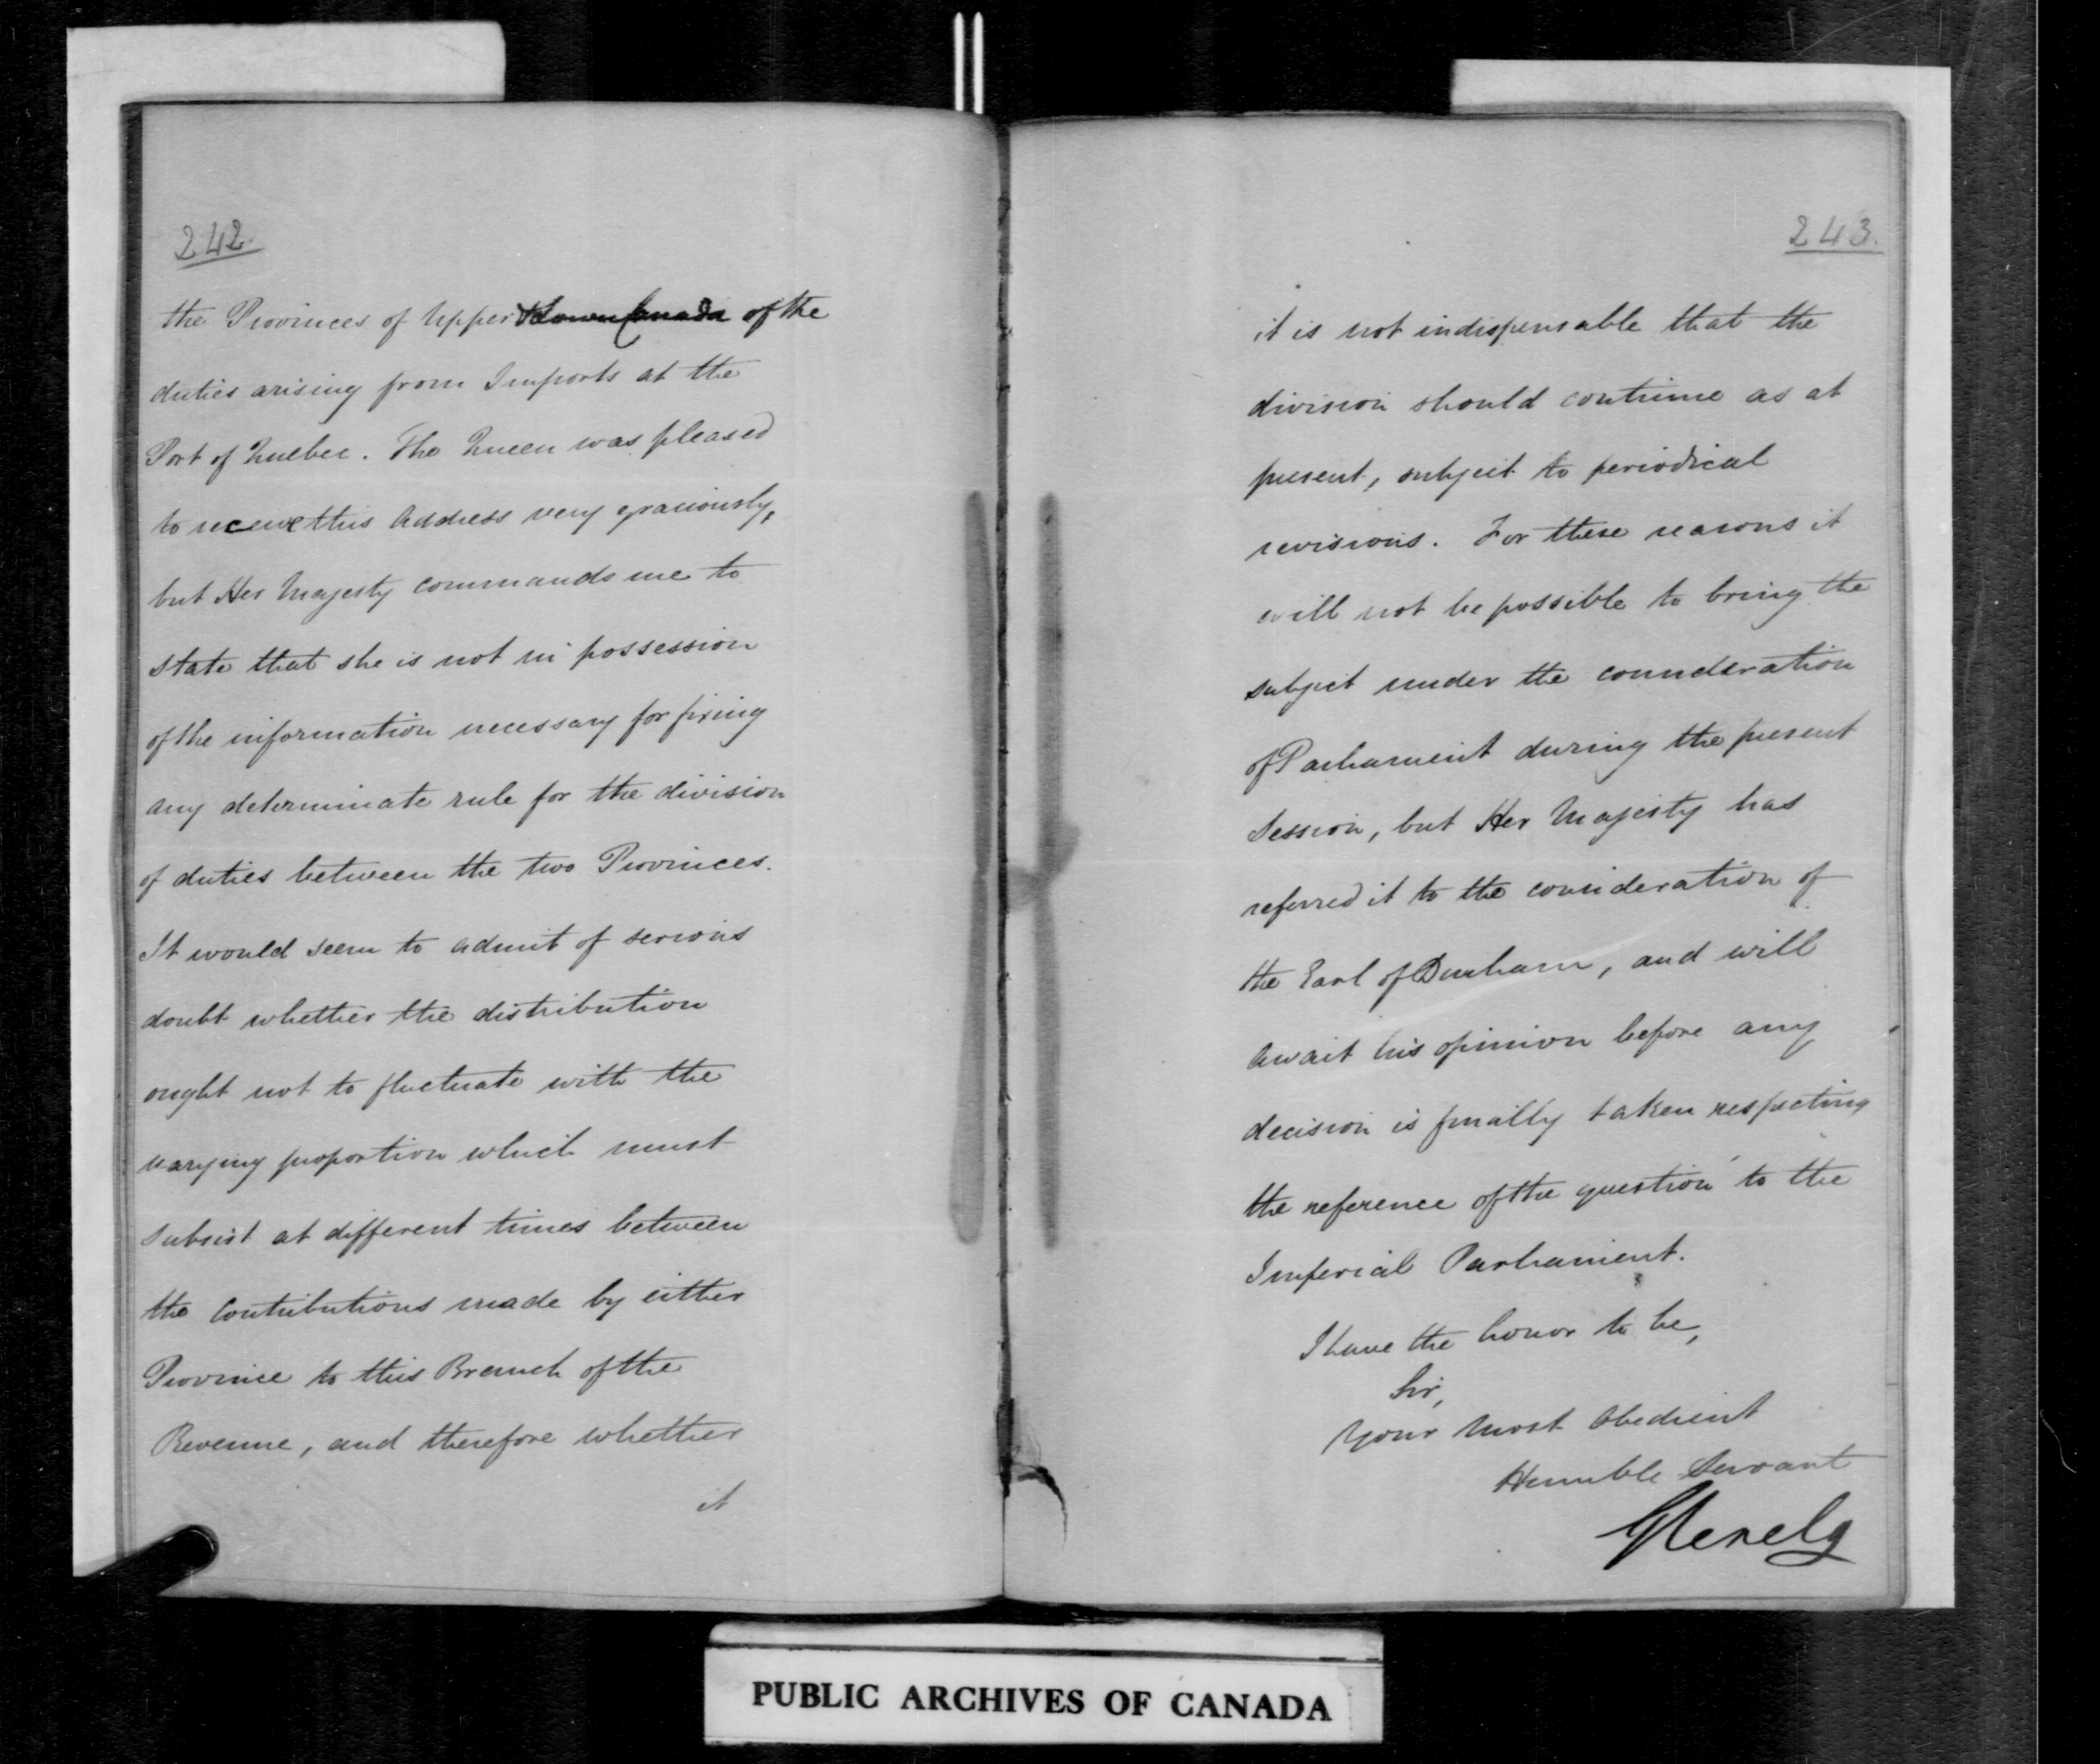 242.
the Provinces of Upper & Lower Canada of the
duties arising from Imports at the
Port of Quebec. The Queen was pleased
to receive this Address very graciously,
but Her Majesty commands me to
state that she is not in possession
of the information necessary for fixing
any determinate rule for the division
of duties between the two Provinces.
It would seem to admit of serious
doubt whether the distribution
ought not to fluctuate with the
varying proportion which must
subsist at different times between
the Contributions made by either
Province to this Branch of the
Revenue, and therefore whether
it
243.
it is not indispensable that the
division should continue as at
present, subject to periodical
revisions. For these reasons it
will not be possible to bring the
subject under the consideration
of Parliament during the present
Session, but Her Majesty has
referred it to the consideration of
the Earl of Durham, and will
await his opinion before any
decision is finally taken respecting
the reference of the question to the
Imperial Parliament.
I have the honor to be,
Sir,
Your Most Obedient
Humble Servant
Glenelg
PUBLIC ARCHIVES OF CANADA